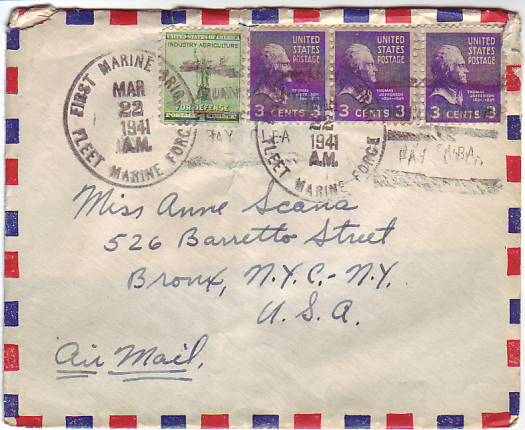 FIRST MARINE BRIGADE
FLEET MARINE FORCE
MAR
22
1941
A.M.
UNITED STATES OF AMERICA
INDUSTRY AGRICULTURE
FOR DEFENSE
UNITED
STATES
POSTAGE
THOMAS
JEFFERSON
3 CENTS 3
UNITED
STATES
POSTAGE
THOMAS
JEFFERSON
3 CENTS 3
UNITED
STATES
POSTAGE
THOMAS
JEFFERSON
3 CENTS 3
22
1941
A.M.
FLEET MARINE FORCE
BAY
BAY
Miss Anne Scana
526 Barretto Street
Bronx, N.Y.C.-N.Y.
U.S.A.
Air Mail.